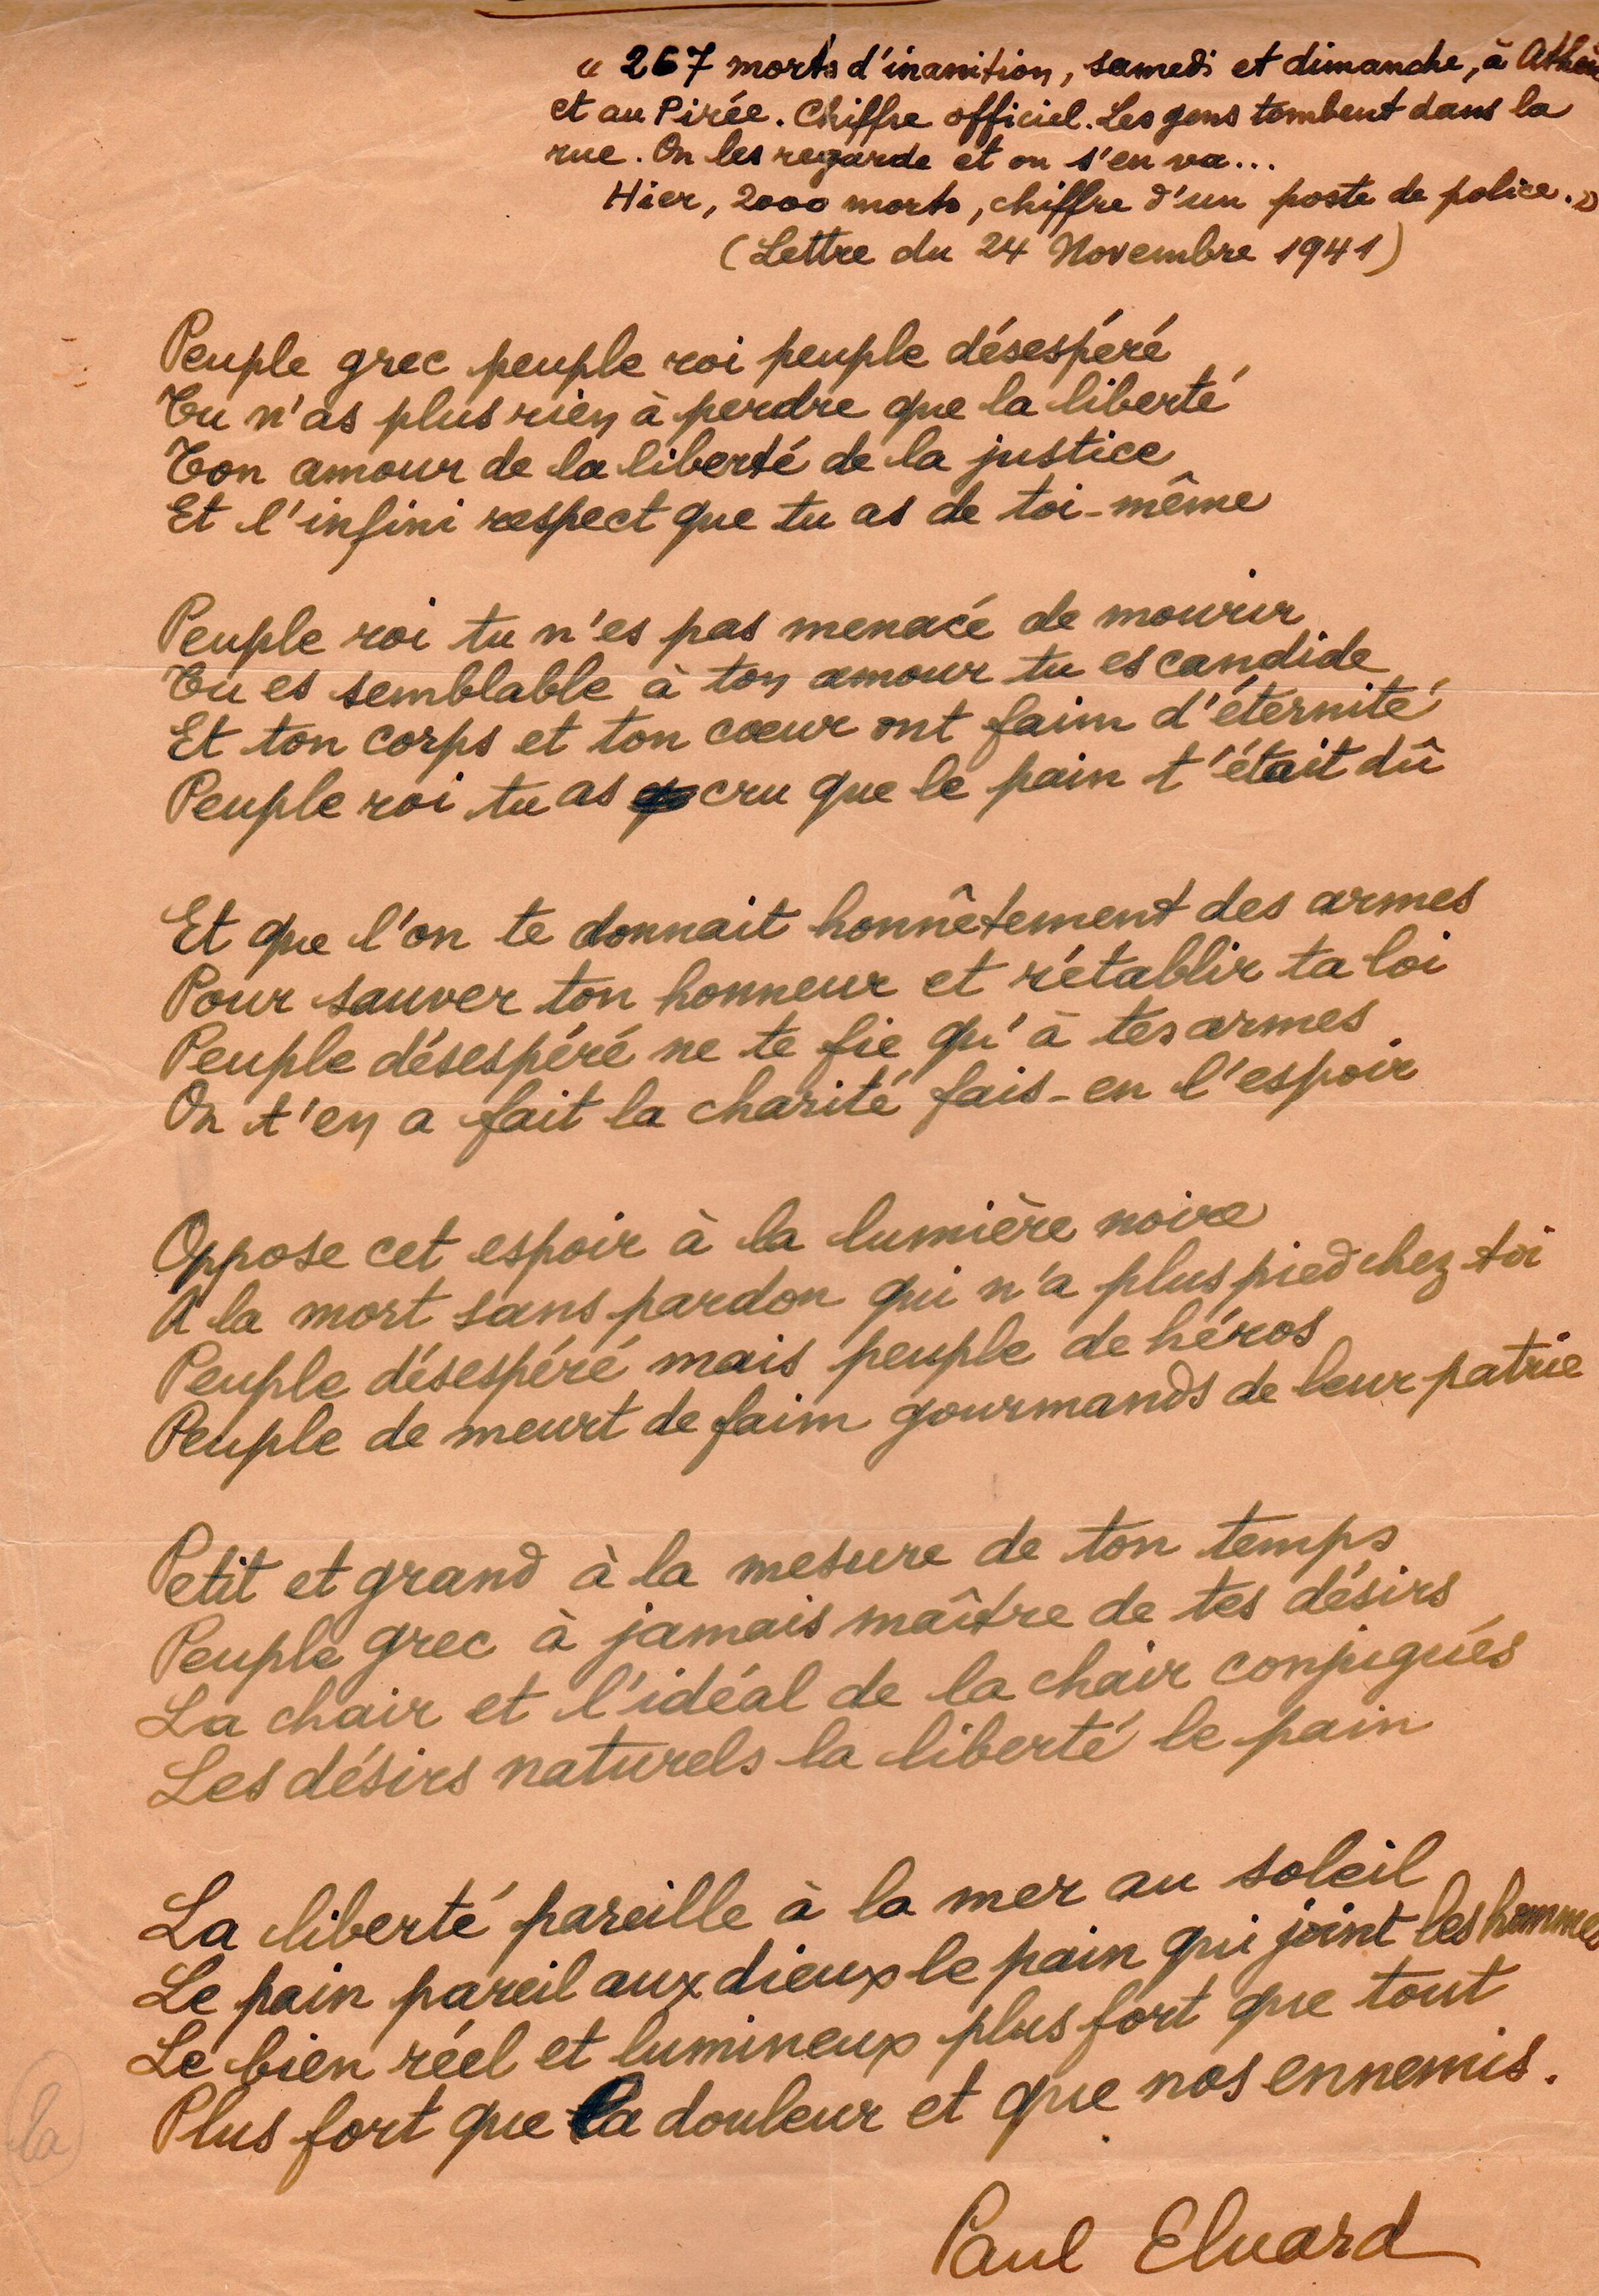 « 267 morts d'inanition, samedi et dimanche, à Athèn
et au Pirée. Chiffre officiel. Les gens tombent dans la
rue. On les regarde et on s'en va...
Hier, 2000 morts, chiffre d'un poste de police. »
(Lettre du 24 Novembre 1941)
Peuple grec peuple roi peuple désespéré
Tu n'as plus rien à perdre que la liberté
Ton amour de la liberté de la justice
Et l'infini respect que tu as de toi-même
Peuple roi tu n'es pas menacé de mourir
Tu es semblable à ton amour tu es candide
Et ton corps et ton cœur ont faim d'éternité
Peuple roi tu as cru que le pain t'était dû
Et que l'on te donnait honnêtement des armes
Pour sauver ton honneur et rétablir ta loi
Peuple désespéré ne te fie qu'à tes armes
On t'en a fait la charité fais-en l'espoir
Oppose cet espoir à la lumière noire
A la mort sans pardon qui n'a plus pied chez toi
Peuple désespéré mais peuple de héros
Peuple de meurt de faim gourmands de leur patrie
Petit et grand à la mesure de ton temps
Peuple grec à jamais maître de tes désirs
La chair et l'idéal de la chair conjugués
Les désirs naturels la liberté le pain
La liberté pareille à la mer au soleil
Le pain pareil aux dieux le pain qui joint les hommes
Le bien réel et lumineux plus fort que tout
Plus fort que la douleur et que nos ennemis.
la
Paul Eluard